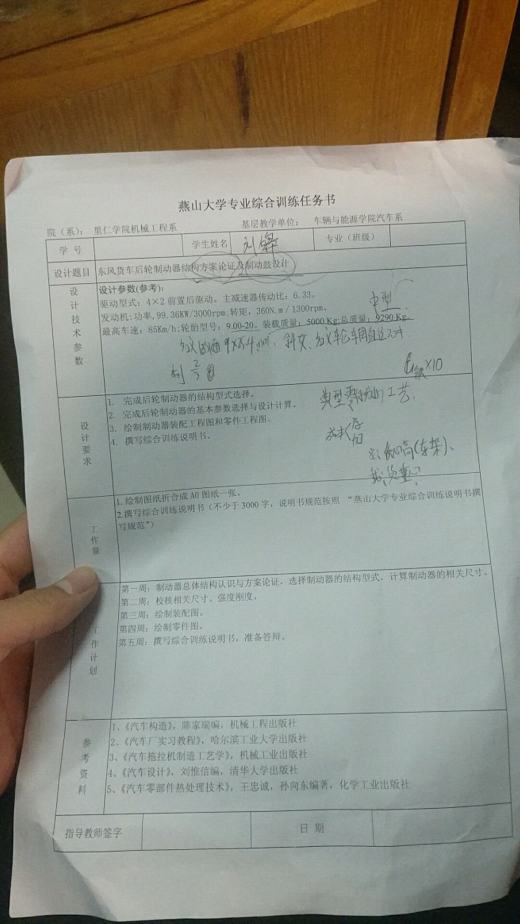 燕山大学专业综合训练任务书
院（系）： 里仁学院机械工程系 基层教学单位： 车辆与能源学院汽车系
学 号 学生姓名 专业（班级）
设计题目 东风货车后轮制动器结构方案论证及制动鼓设计
设计技术参数
设计参数(参考):
驱动型式：4×2 前置后驱动。主减速器传动比：6.33。
发动机:功率,99.36KW/3000rpm.转矩，360N.m / 1300rpm。
最高车速：85Km/h;轮胎型号：9.00-20。装载质量：5000 Kg;总质量：9290 Kg.
中型
×10
设计要求
1. 完成后轮制动器的结构型式选择。
2. 完成后轮制动器的基本参数选择与设计计算。
3. 绘制制动器装配工程图和零件工程图。
4. 撰写综合训练说明书。
工作量
1.绘制图纸折合成 A0 图纸一张。
2.撰写综合训练说明书（不少于 3000 字，说明书规范按照 “燕山大学专业综合训练说明书撰
写规范”）
工作计划
第一周：制动器总体结构认识与方案论证，选择制动器的结构型式，计算制动器的相关尺寸。
第二周：校核相关尺寸、强度刚度。
第三周：绘制装配图。
第四周：绘制零件图。
第五周：撰写综合训练说明书，准备答辩。
参考资料
1、《汽车构造》，陈家瑞编，机械工程出版社
2、《汽车厂实习教程》，哈尔滨工业大学出版社
3、《汽车拖拉机制造工艺学》，机械工业出版社
4、《汽车设计》，刘惟信编，清华大学出版社
5、《汽车零部件热处理技术》，王忠诚，孙向东编著，化学工业出版社
指导教师签字 日 期